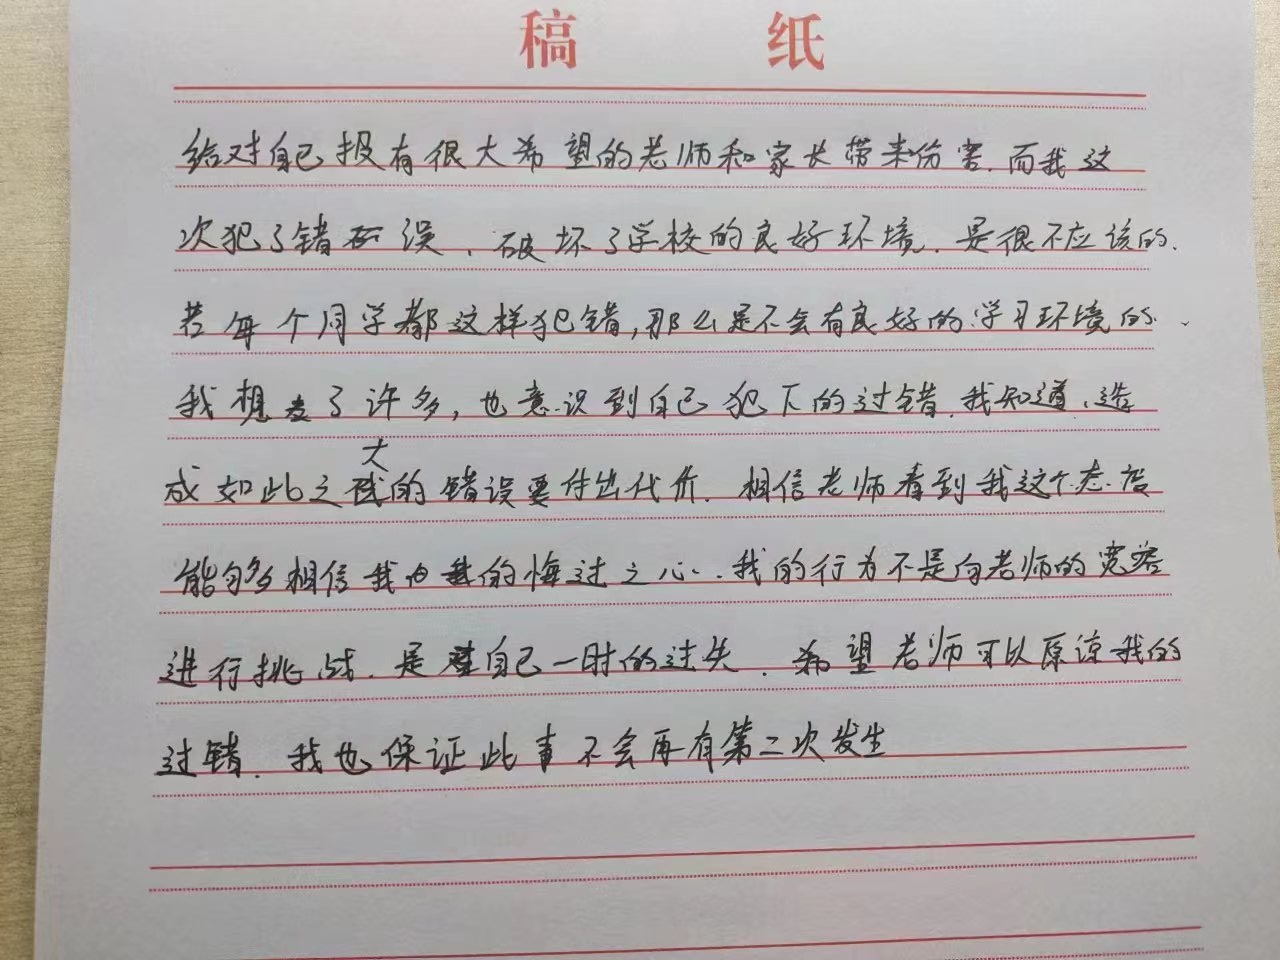 稿 纸
给对自己报有很大希望的老师和家长带来伤害.而我这
次犯了错误、破坏了学校的良好环境.是很不应该的.
若每个同学都这样犯错,那么是不会有良好的学习环境的、
我想了许多,也意识到自己犯下的过错.我知道、造
成如此之大的错误要付出代价.相信老师看到我这个态度
能够多相信我的悔过之心.我的行为不是向老师的宽容
进行挑战.是自己一时的过失.希望老师可以原谅我的
过错.我也保证此事不会再有第二次发生